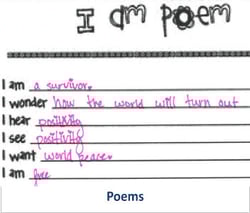 I am poem
I am a survivor.
I wonder how the world will turn out
I hear positivity
I see positivity
I want world peace.
I am free
Poems